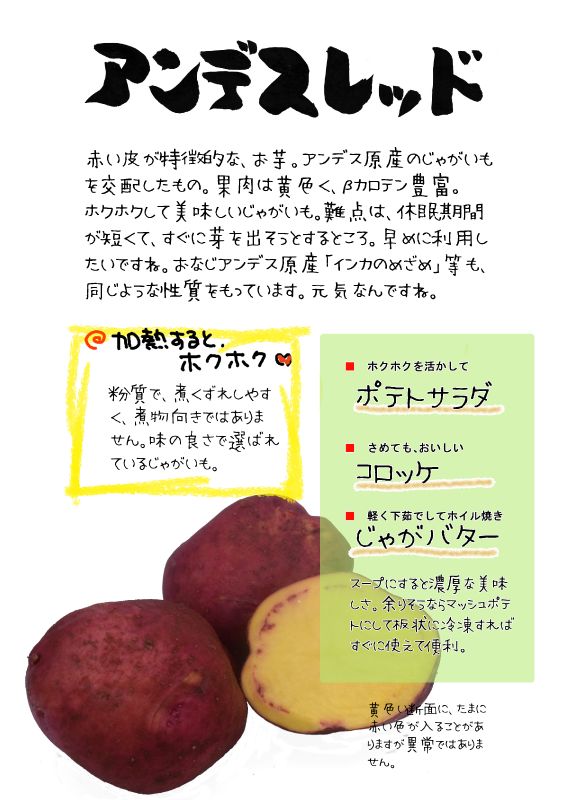 アンデスレッド
赤い皮が特徴的な、お芋。アンデス原産のじゃがいも
を交配したもの。果肉は黄色く、βカロテン豊富。
ホクホクして美味しいじゃがいも。難点は、休眠期間
が短くて、すぐに芽を出そうとするところ。早めに利用し
たいですね。おなじアンデス原産「インカのめざめ」等も、
同じような性質をもっています。元気なんですね。
加熱すると、
ホクホク
粉質で、煮くずれしやす
く、煮物向きではありま
せん。味の良さで選ばれ
ているじゃがいも。
ホクホクを活かして
ポテトサラダ
さめても、おいしい
コロッケ
軽く下茹でしてホイル焼き
じゃがバター
スープにすると濃厚な美味
しさ。余りそうならマッシュポテ
トにして板状に冷凍すれば
すぐに使えて便利。
黄色い断面に、たまに
赤い色が入ることがあ
りますが異常ではありま
せん。